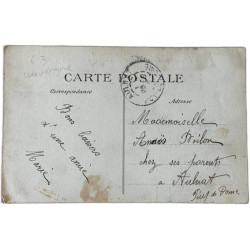 63
CARTE POSTALE
Correspondance
Adresse
Bons baisers
d'une amie
Marie
Mademoiselle
chez ses parents
à Aulnat
Puy de Dôme